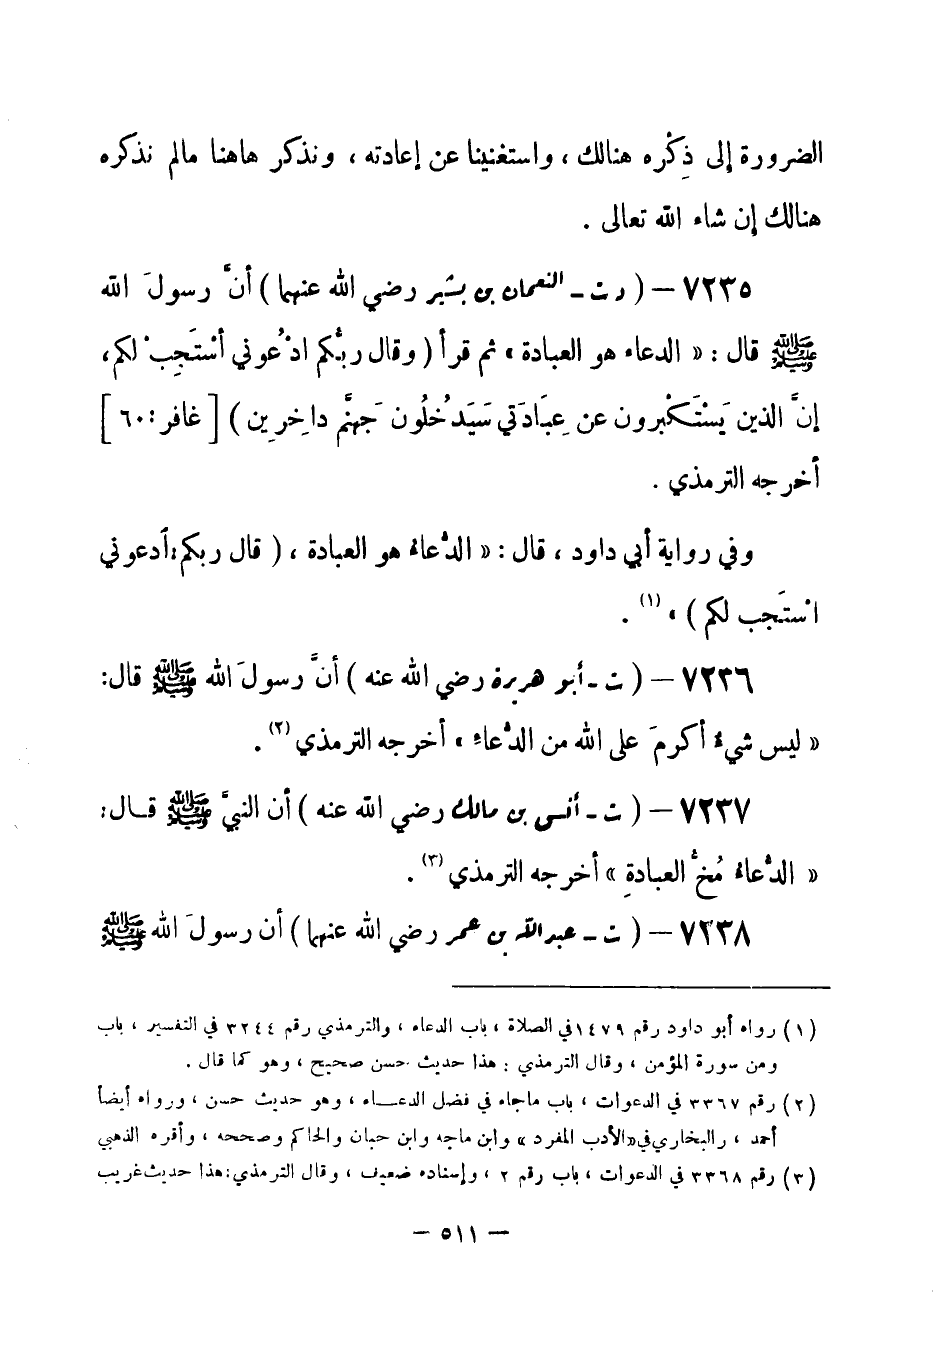 الضرورة إلى ذِكْره هنالك ، واستغنينا عن إعادته ، ونذكر هاهنا مالم نذكره
هنالك إن شاء الله تعالى .
٧٢٣٥ – ( د ت - النعمان بن بشير رضي الله عنهما ) أنَّ رسولَ الله
ﷺ قال : « الدعاء هو العبادة » ثم قرأ ( وقال ربُّكم ادْعوني أسْتَجِبْ لكم،
إنَّ الذين يَسْتَكْبرون عن عِبَادَتي سَيَدْخُلُون جَهنَّم داخِرِين ) [ غافر: ٦٠ ]
أخرجه الترمذي .
وفي رواية أبي داود ، قال : « الدُّعاءُ هو العبادة ، ( قال ربكم: أدعوني
اسْتَجب لكم ) » (١) .
٧٢٣٦ – ( ت - أبو هريرة رضي الله عنه ) أنَّ رسولَ الله ﷺ قال:
« ليس شيءٌ أكرمَ على الله من الدُّعاءِ » أخرجه الترمذي (٢) .
٧٢٣٧ – ( ت - أنس بن مالك رضي الله عنه ) أن النبيَّ ﷺ قال:
« الدُّعاءُ مُخُّ العبادةِ » أخرجه الترمذي (٣) .
٧٢٣٨ – ( ت - عبدالله بن عمر رضي الله عنهما ) أن رسولَ الله ﷺ
(١) رواه أبو داود رقم ١٤٧٩ في الصلاة ، باب الدعاء ، والترمذي رقم ٣٢٤٤ في التفسير ، باب
ومن سورة المؤمن ، وقال الترمذي : هذا حديث حسن صحيح ، وهو كما قال .
(٢) رقم ٣٣٦٧ في الدعوات ، باب ماجاء في فضل الدعاء ، وهو حديث حسن ، ورواه أيضاً
أحمد ، والبخاري في «الأدب المفرد» وابن ماجه وابن حبان والحاكم وصححه ، وأقره الذهبي
(٣) رقم ٣٣٦٨ في الدعوات ، باب رقم ٢ ، وإسناده ضعيف ، وقال الترمذي: هذا حديث غريب
– ٥١١ –